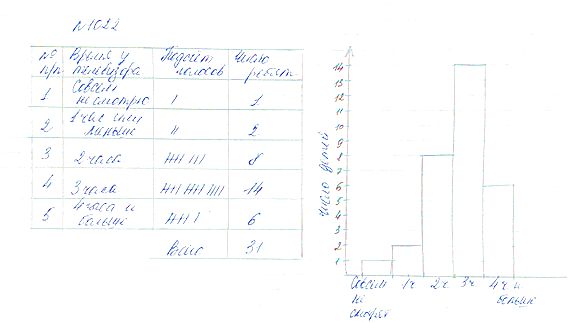 №1022
№ Время у Подсчёт Число
п/п телевизора голосов ребят
1 Совсем не смотрю I 1
2 1 час или меньше II 2
3 2 часа HH III 8
4 3 часа HH HH IIII 14
5 4 часа и больше HH I 6
Всего 31
Число детей
14
13
12
11
10
9
8
7
6
5
4
3
2
1
Совсем 1ч 2ч 3ч 4ч и
не больше
смотрят